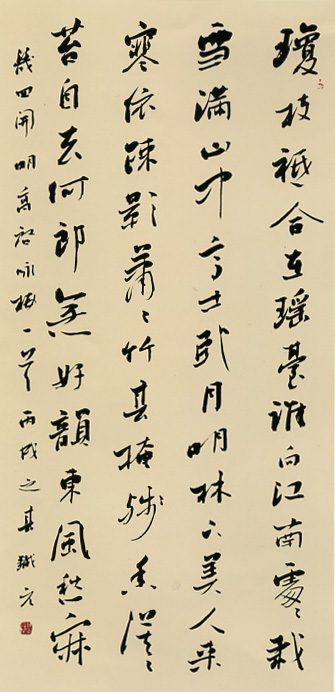 瓊枝祗合在瑶臺誰向江南處〻栽
雪滿山中高士卧月明林下美人来
寒依疎影蕭〻竹春掩殘香漠〻
苔自去何郎無好韻東風愁寂
幾回開明高啓咏梅一首丙戌之春